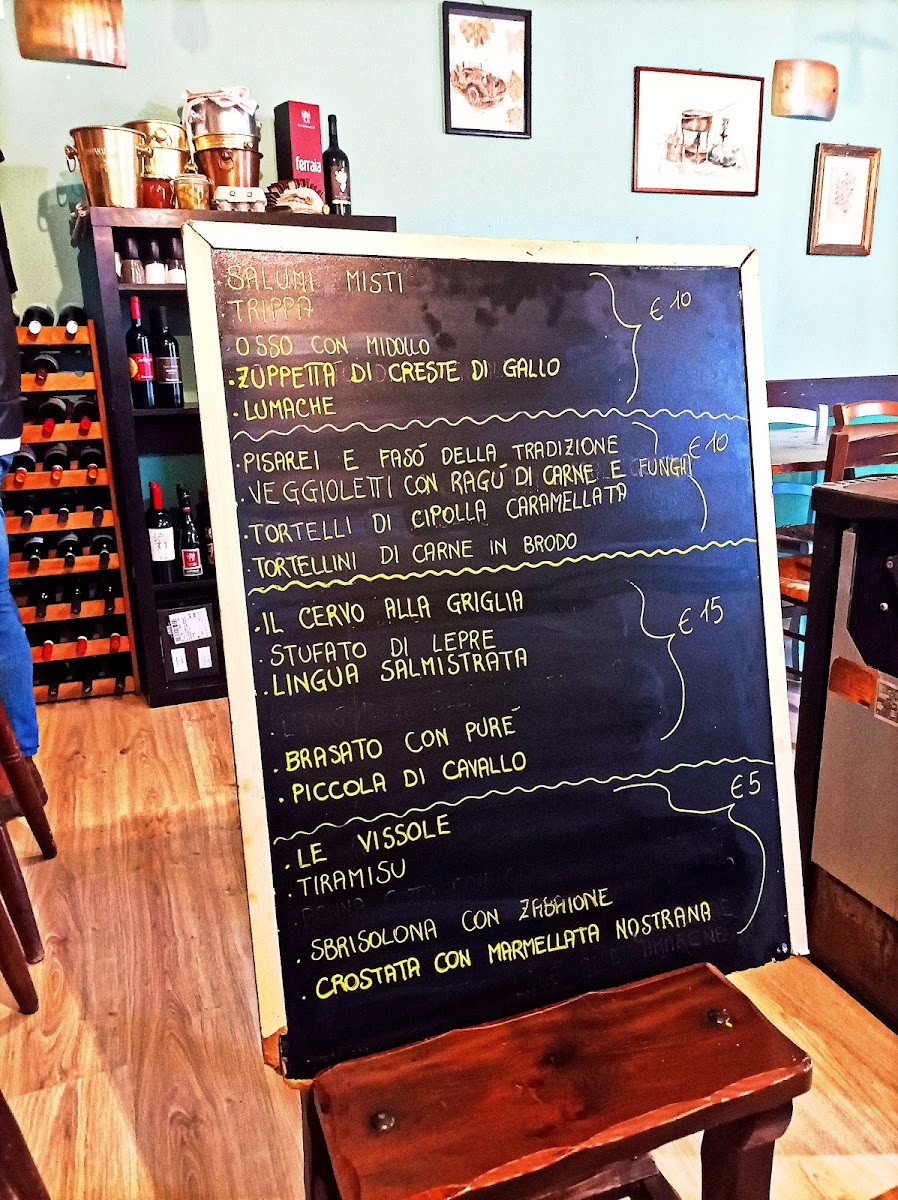 ferraia
SALUMI MISTI
·TRIPPA
€ 10
·OSSO CON MIDOLLO
·ZUPPETTA DI CRESTE DI GALLO
·LUMACHE
·PISAREI E FASÓ DELLA TRADIZIONE
€ 10
·VEGGIOLETTI CON RAGÚ DI CARNE E FUNGHI
·TORTELLI DI CIPOLLA CARAMELLATA
·TORTELLINI DI CARNE IN BRODO
·IL CERVO ALLA GRIGLIA
€ 15
·STUFATO DI LEPRE
·LINGUA SALMISTRATA
·BRASATO CON PURÉ
·PICCOLA DI CAVALLO
€ 5
·LE VISSOLE
·TIRAMISU
·SBRISOLONA CON ZABAIONE
·CROSTATA CON MARMELLATA NOSTRANA